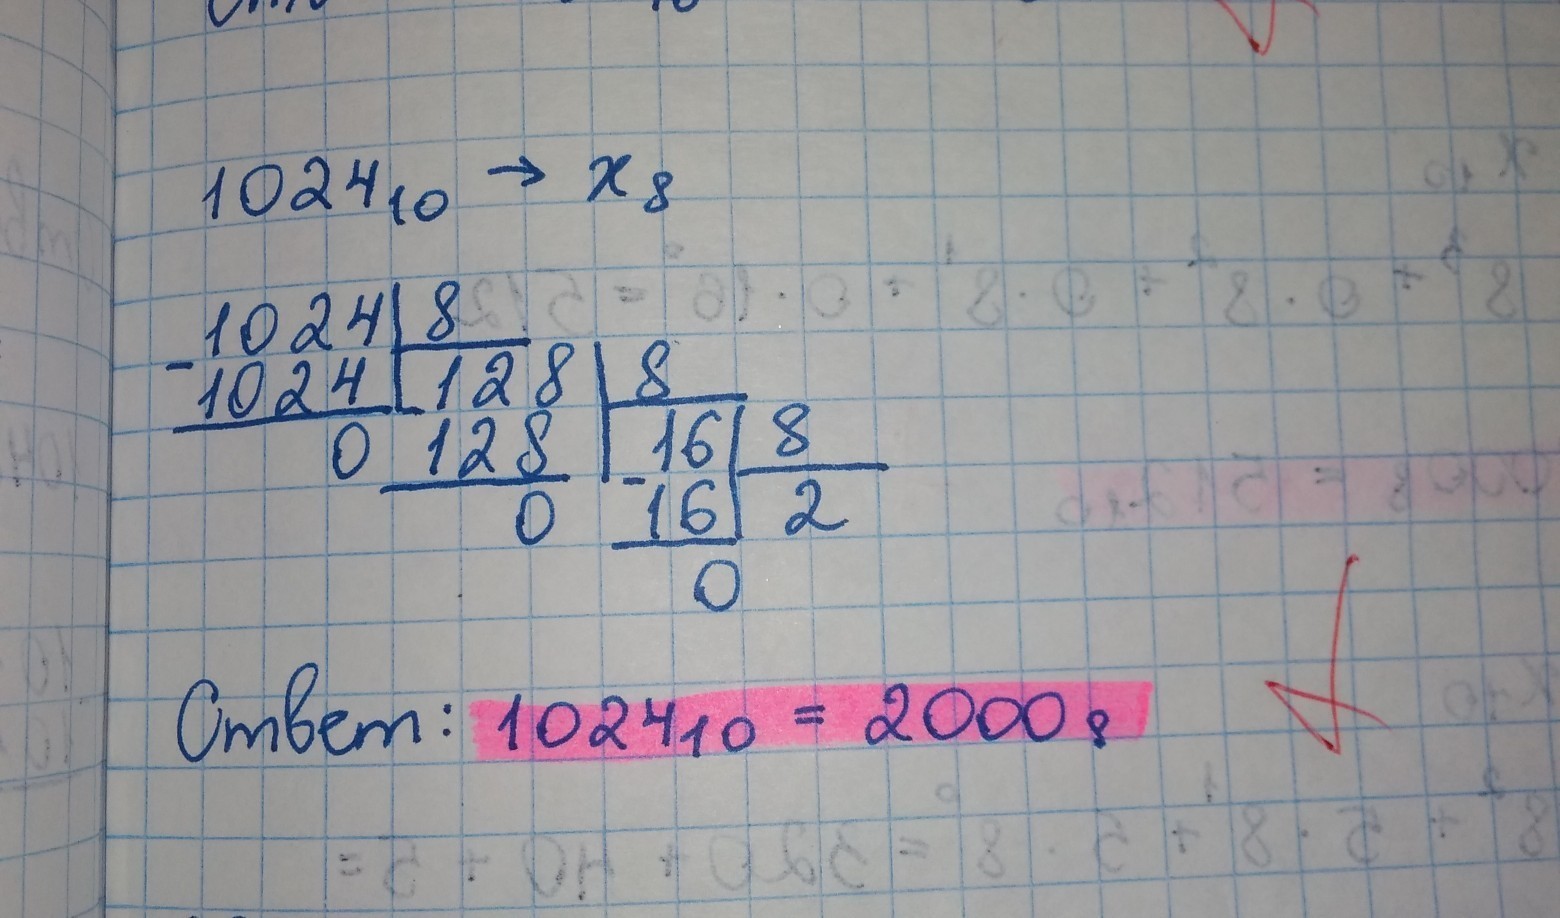 1024₁₀ → x₈
1024 8
- 1024 128 8
0 128 16 8
0 - 16 2
0
Ответ: 1024₁₀ = 2000₈